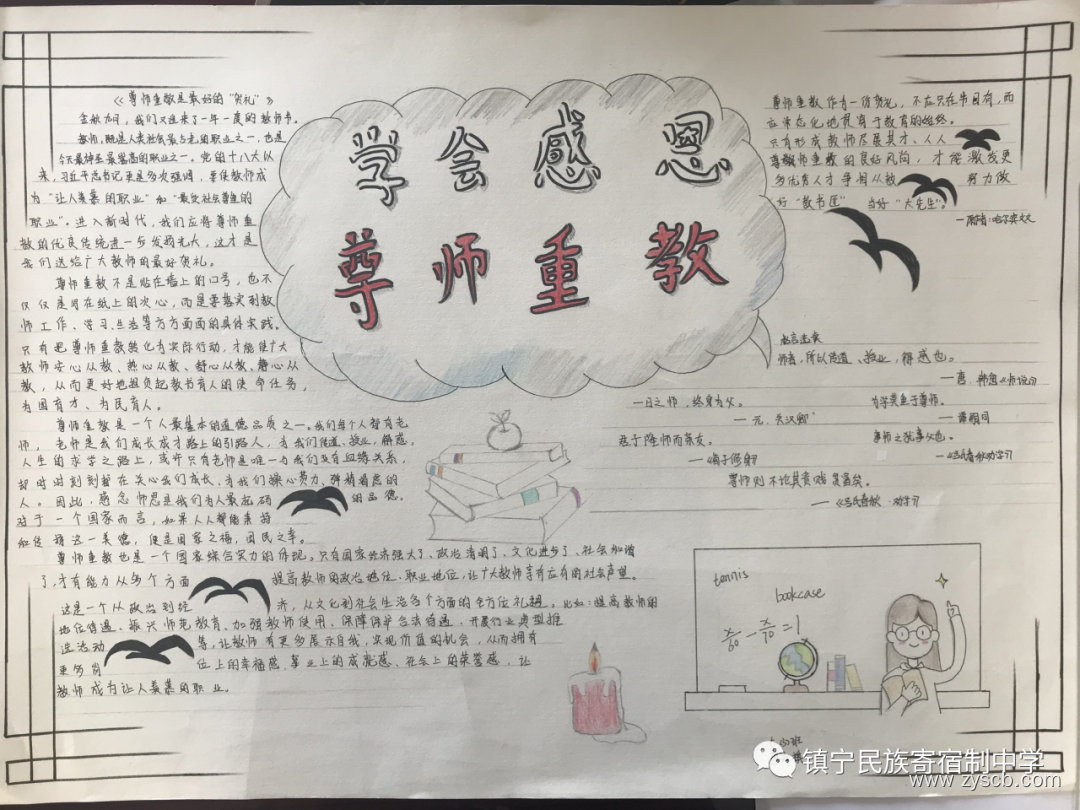 《尊师重教是最好的“贺礼”》
金秋九月，我们又迎来了一年一度的教师节。
教师，既是人类社会最古老的职业之一，也是
今天最神圣最崇高的职业之一。党的十八大以
来，习近平总书记更是多次强调，要使教师成
为“让人羡慕的职业”和“最受社会尊重的
职业”。进入新时代，我们应将尊师重
教的优良传统进一步发扬光大，这才是
我们送给广大教师的最好贺礼。
尊师重教不是贴在墙上的口号，也不
仅仅是写在纸上的决心，而是要落实到教
师工作、学习、生活等方方面面的具体实践。
只有把尊师重教转化为实际行动，才能使广大
教师安心从教、热心从教、舒心从教、静心从
教，从而更好地担负起教书育人的使命任务，
为国育才、为民育人。
尊师重教是一个人最基本的道德品质之一。我们每个人都有老
师，老师是我们成长成才路上的引路人，为我们传道、授业、解惑。
人生的求学之路上，或许只有老师是唯一与我们没有血缘关系，
却时时刻刻都在关心我们成长、为我们操心劳力、弹精竭虑的
人。因此，感念师恩是我们为人最起码的品德。
对于一个国家而言，如果人人都能秉持
和传颂这一美德，便是国家之福，国民之幸。
尊师重教也是一个国家综合实力的体现。只有国家经济强大了、政治清明了、文化进步了、社会和谐
了，才有能力从多个方面提高教师的政治地位、职业地位，让广大教师享有应有的社会声望。
这是一个从政治到经济，从文化到社会生活多个方面的全方位礼遇。比如：提高教师的
地位待遇、振兴师范教育、加强教师使用、保障保护合法待遇、开展行业典型推
选活动等，让教师有更多展示自我，实现价值的机会，从而拥有
更多岗位上的幸福感、事业上的成就感、社会上的荣誉感，让
教师成为让人羡慕的职业。
学会感恩
尊师重教
尊师重教作为一份贺礼，不应只在节日有，而
应常态化地贯穿于教育的始终。
只有形成教师尽展其才、人人
尊敬师重教的良好风尚，才能激发更
多优秀人才争相从教努力做
好“教书匠”当好“大先生”。
名言志实
师者，所以传道、授业，解惑也。
—唐．韩愈《师说》
一日之师，终身为父。
—元．关汉卿
为学莫重于尊师。
—谭嗣同
君子隆师而亲友。
—《荀子·修身》
事师之犹事父也。
—《吕氏春秋·劝学》
尊师则不论其贵贱贫富矣。
—《吕氏春秋·劝学》
tennis
bookcase
x/60 - x/70 = 1
镇宁民族寄宿制中学
www.zyscb.com